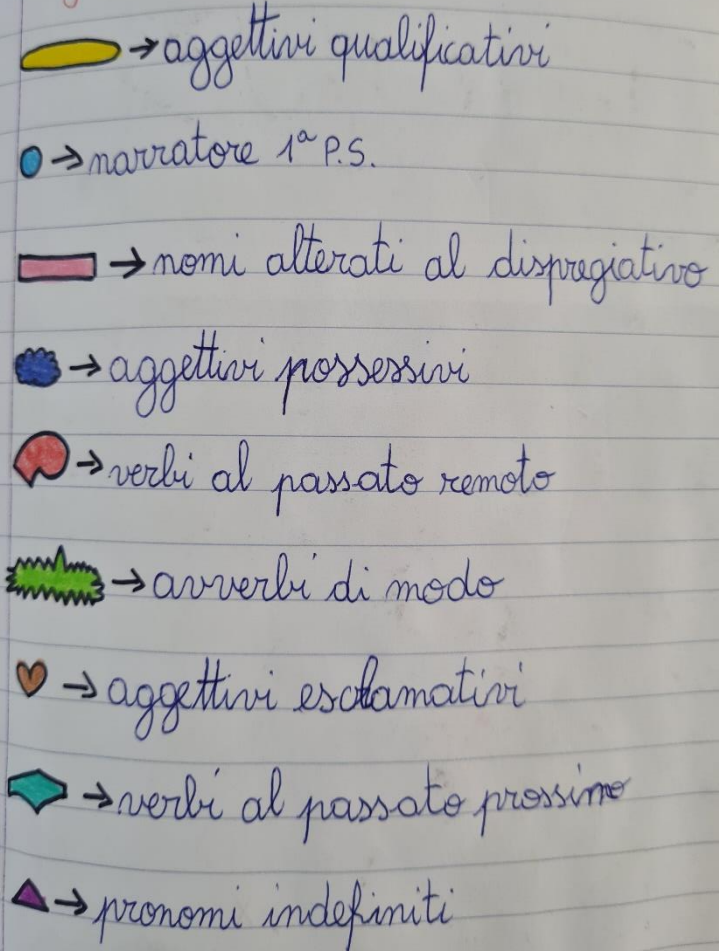 → aggettivi qualificativi
→ narratore 1ª P.S.
→ nomi alterati al dispregiativo
→ aggettivi possessivi
→ verbi al passato remoto
→ avverbi di modo
→ aggettivi esclamativi
→ verbi al passato prossimo
→ pronomi indefiniti